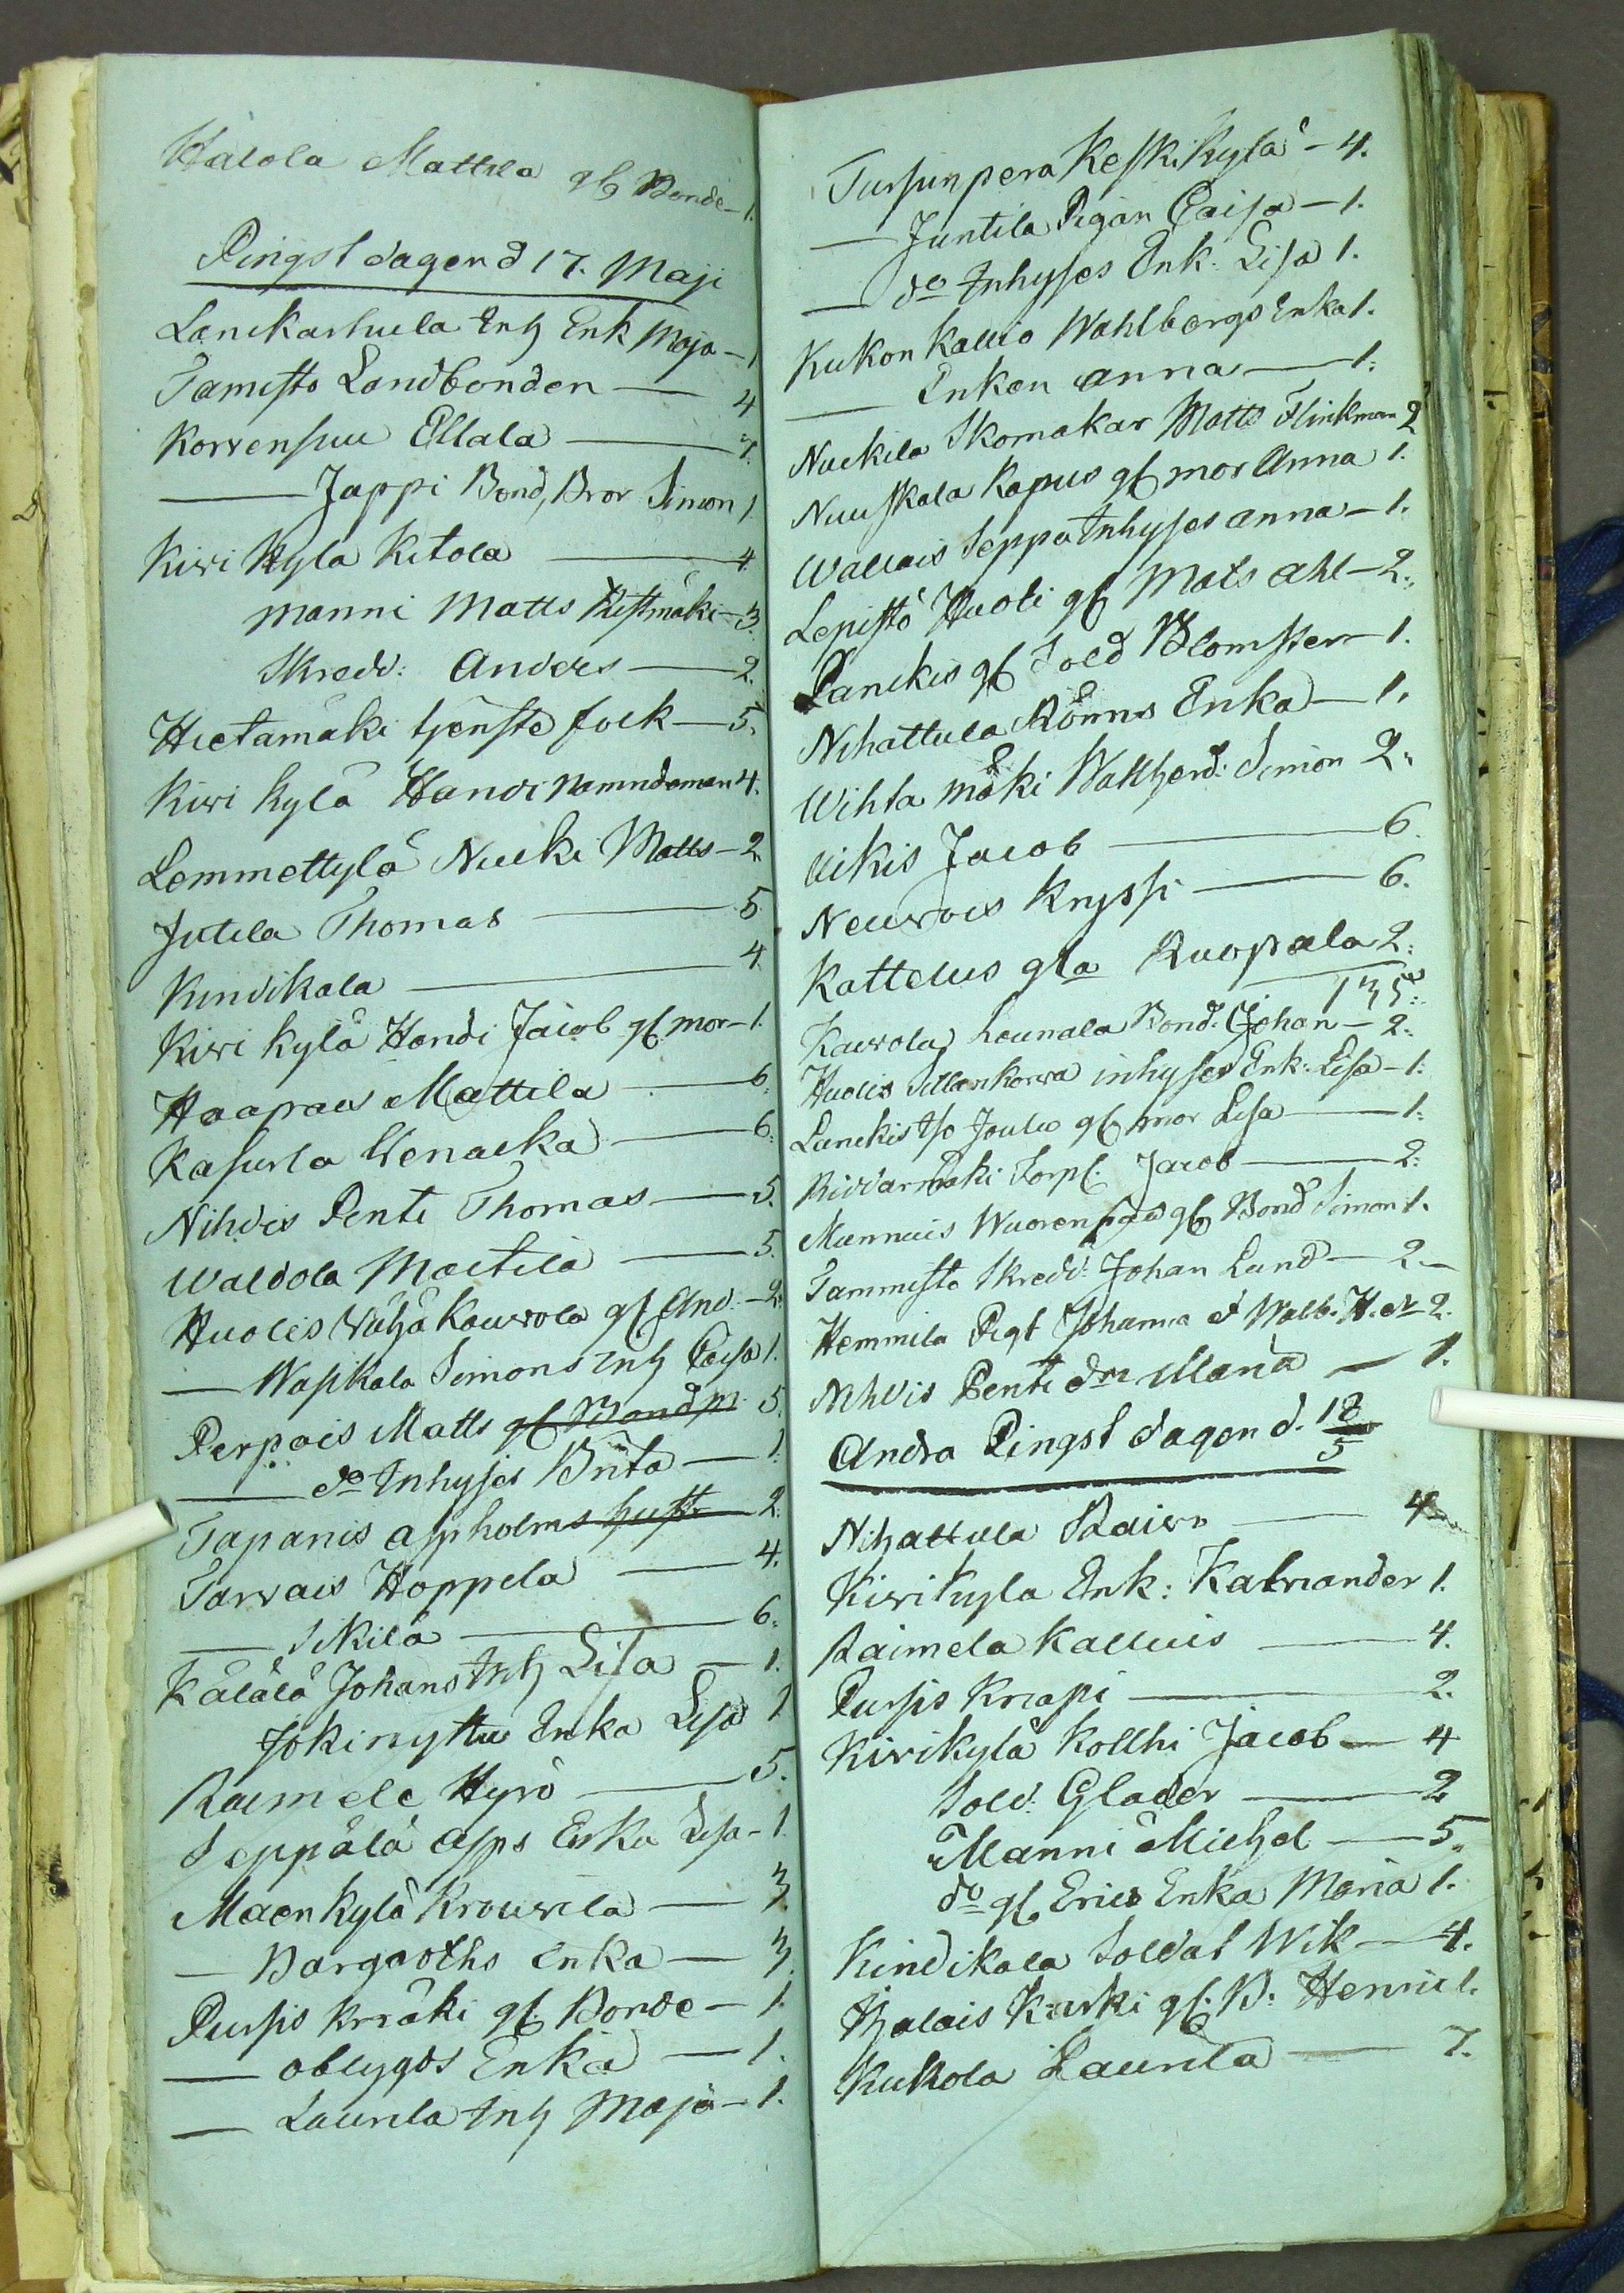 Hälola Mattila gl Bonde - 1.
Pingst dagen d 17. Maji
Lanckarhula Inh Enk Maja - 1
Tamisto Landbonden — 4
Korvensuu Ellala — 7.
— Jappi Bond, Bror Simon 1
Kivi Kyla Kitola — 4
Manni Matts Ristmäki - 3.
Skredd: Anders — 2.
Hietamäki tjenste folk — 5.
Kivi kylä Handi Nämndeman 4.
Lemmettylä Nucki Matts - 2
Jutila Thomas — 5
Kindikala — 4.
Kivi kylä Handi Jacob gl mor - 1.
Haapais Mattila — 6.
Kasurla Wenacka — 6.
Nihdis Penti Thomas — 5.
Waldola Mattila — 5.
Huolis Vähä Kauvola gl And. - 2.
— Waskala Simons Inh Caisa 1.
Perpois Matts gl Bond m 5.
— do Inhyses Brita — 1.
Tapanis Aspholms hustr 2.
Tarvais Hoppela — 4.
— Sikilä — 6.
Kälälä Johans Inh Lisa — 1.
Jokirysttu Enka Lisa 1
Raimele Hyrö — 5.
Seppälä Asps Enka Lisa - 1.
Maenkylä Krouvila — 3.
— Bargroths Enka — 3.
Pursis Krääki gl Bonde — 1.
— Oblygds Enka — 1.
— Laurila Inh Maja - 1.
Tursunpera Keskikylä - 4.
— Juntila Pigan Caisa - 1.
— do Inhyses Enk: Lisa 1.
Kukonkallio Wahlbergs Enka 1.
— Enkan Anna — 1.
Nuckila Skomakar Matts Flinkman 2
Nuuskala Kapus gl mor Anna 1.
Wallais Seppa Inhyses Anna - 1.
Lepistö Huoti gl Mats Ahl - 2.
Lanckis gl Sold Blomster - 1.
Nihattula Rönns Enka - 1.
Wihta mäki Wallherd: Simon 2.
Uikis Jacob — 6.
Neuvois Kryssi — 6.
Kattelus gla Ruopala 2:
135:
Kauvola Leunala Bond. Johan - 2.
Huolis Myllenkorva inhyses Enk: Lisa - 1.
Lanckis tp Joulu gl mor Lisa — 1.
Riddarmäki Torp. Jacob — 2:
Mannais Wuorenpää gl Bond Simon 1.
Tammisto Skredd: Johan Lund — 2.
Hemmila Pigt Johanna d Walb. H. dr 2.
Nihdis Penti dm Maria — 1.
Andra Pingst dagen d. 18/5
Nihattula Raivo — 4
Kivikyla Enk: Kalnander 1.
Raimela Kalluis — 4.
Pursis Knapi — 2.
Kivikylä Kollhi Jacob — 4
Sold: Glader — 2
Manni Michel — 5.
do gl Erics Enka Maria 1.
Kindikala Soldat Wik — 4.
Hjalais Karki gl. B. Henric 1.
Kukola Laurila — 7.